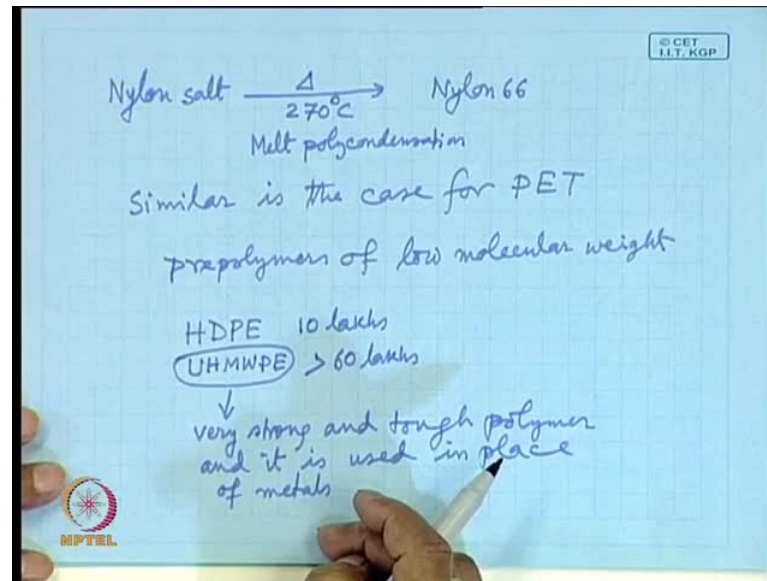 © CET
I.I.T. KGP
Nylon salt Δ Nylon 66
270°C
Melt polycondensation
Similar is the case for PET
prepolymers of low molecular weight
HDPE 10 lakhs
UHMWPE > 60 lakhs
very strong and tough polymer
and it is used in place
of metals
NPTEL